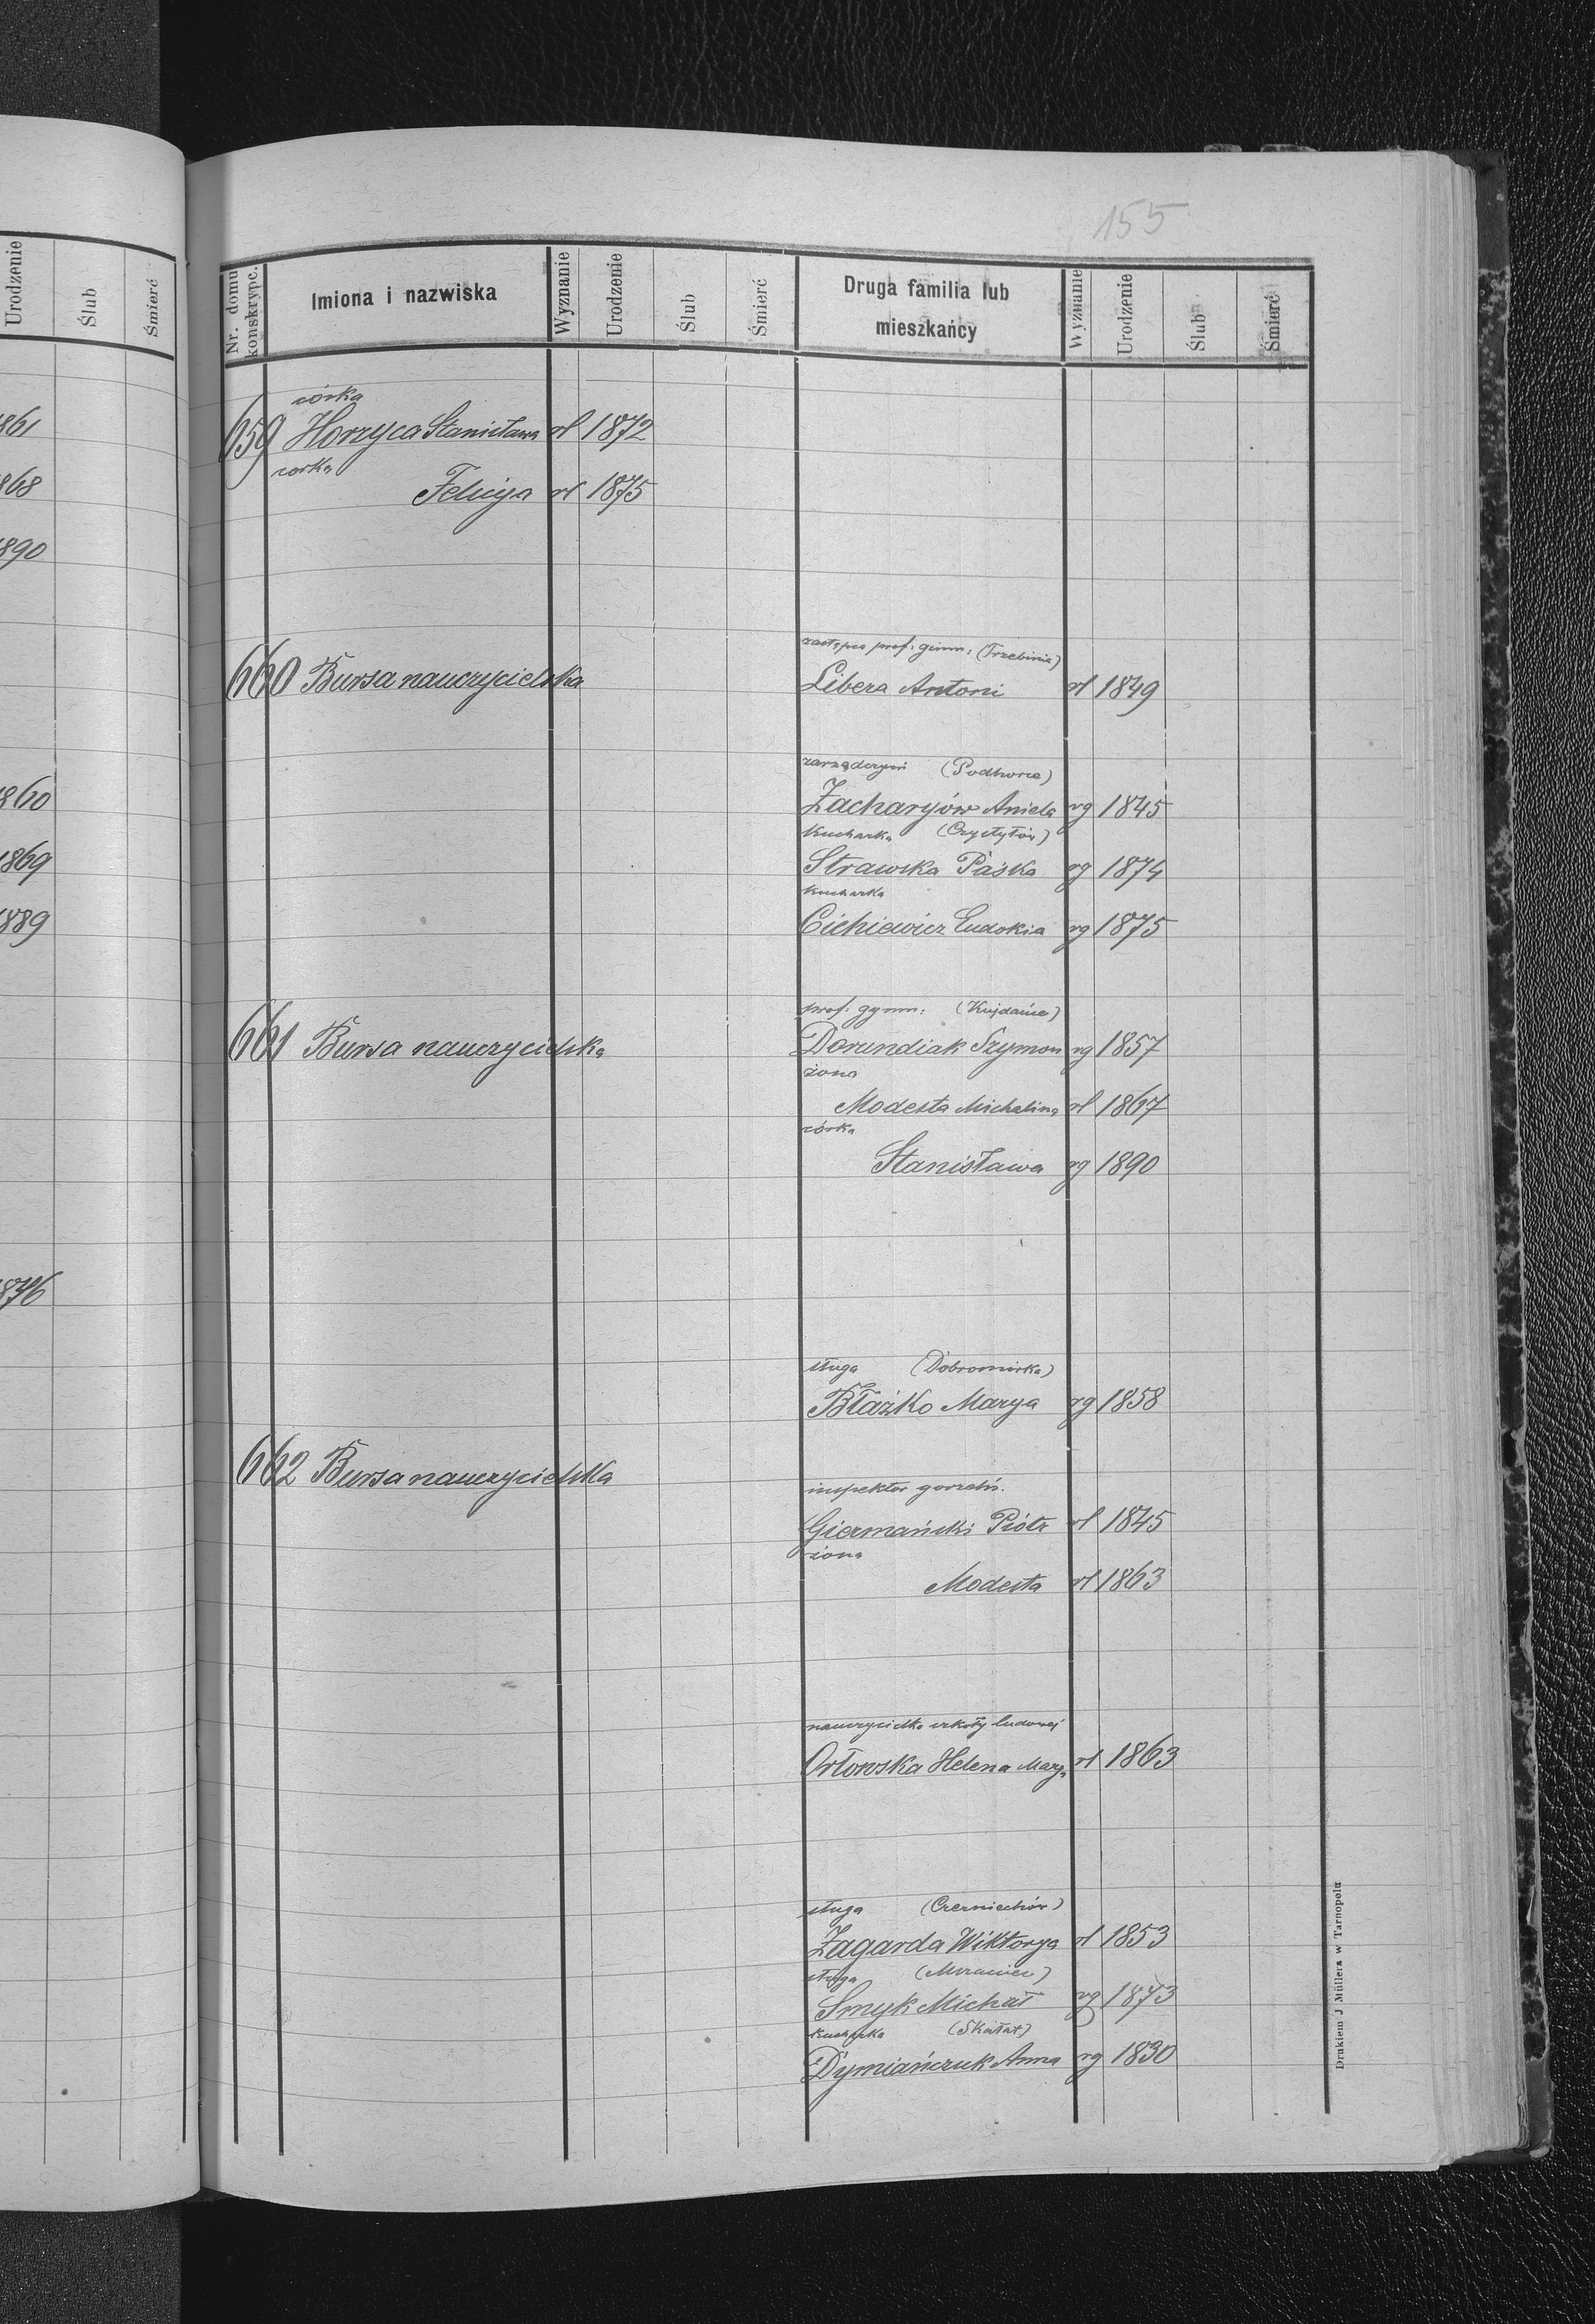 155
Urodzenie Ślub Śmierć
Nr. domu konskrypc. Imiona i nazwiska Wyznanie Urodzenie Ślub Śmierć Druga familia lub mieszkańcy Wyznanie Urodzenie Ślub Śmierć
córka
861
659 Horzyca Stanisława rł 1872
corka
868
Felicya rł 1875
890
zastępca prof. gimn: (Trzebinia)
660 Bursa nauczycielska Libera Antoni rł 1849
zarządczyni (Podhorce)
860
Zacharyów Aniela rg 1845
Kucharka (Czystyłów)
1869
Strawska Paśka rg 1874
kucharka
1889
Cichiewicz Eudokia rg 1875
prof. gymn: (Kujdańce)
661 Bursa nauczycielska Dorundiak Szymon rg 1857
żona
Modesta Michalina rł 1867
córka
Stanisława rg 1890
876
sługa (Dobromirka)
Błażko Marya rg 1858
662 Bursa nauczycielska
inspektor gorzelń.
Giermański Piótr rł 1845
żona
Modesta rł 1863
nauczycielka szkoły ludowej
Orłowska Helena Marya rł 1863
sługa (Czerniechów)
Zagarda Wiktorya rł 1853
sługa
Smyk Michał rg 1873
Kucharka (Skałat)
Dymiańczuk Anna rg 1830
Drukiem J Müllera w Tarnopolu